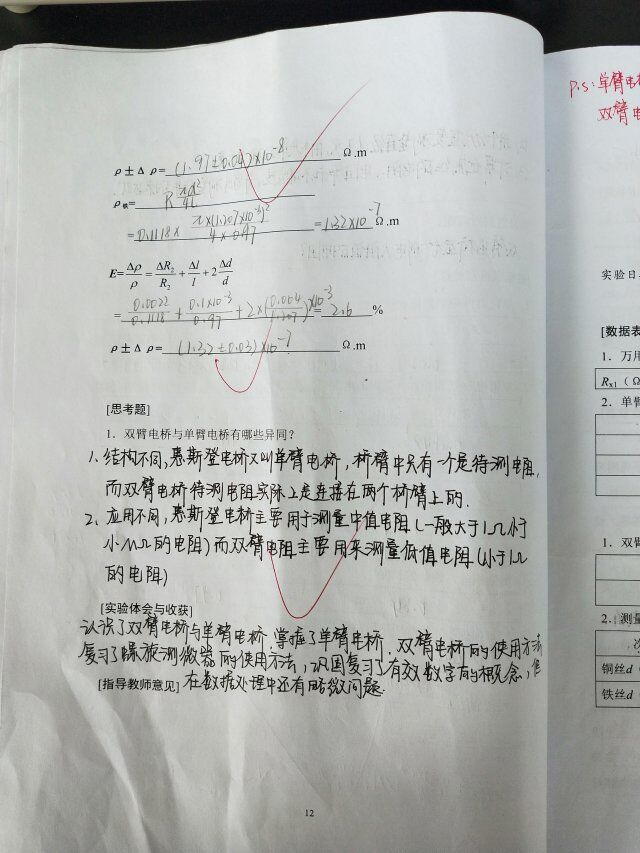 ρ±Δ ρ= (1.97±0.04)×10⁻⁸ Ω.m
ρ铁= R πd²/4L
= 0.1118× π×(1.207×10⁻³)²/4×0.97 =1.32×10⁻⁷ Ω.m
E=Δρ/ρ=ΔR₂/R₂+Δl/l+2Δd/d
= 0.0022/0.1118+0.1×10⁻³/0.97+2×(0.004/1.207)×10⁻³= 2.6 %
ρ±Δ ρ= (1.32±0.03)×10⁻⁷ Ω.m
[思考题]
1．双臂电桥与单臂电桥有哪些异同？
1、结构不同,惠斯登电桥又叫单臂电桥，桥臂中只有一个是待测电阻,
而双臂电桥待测电阻实际上是连接在两个桥臂上的.
2、应用不同,惠斯登电桥主要用于测量中值电阻(一般大于1Ω小于
小MΩ的电阻)而双臂电阻主要用来测量低值电阻(小于1Ω
的电阻)
[实验体会与收获]
认识了双臂电桥与单臂电桥.掌握了单臂电桥、双臂电桥的使用方法
复习了螺旋测微器的使用方法，巩固复习了有效数字的概念，但
[指导教师意见] 在数据处理中还有略微问题.
12
P.S:单臂电
双臂电
实验日
[数据表
1．万用
Rx1（Ω
2．单臂
1．双臂
2．测量
铜丝d
铁丝d